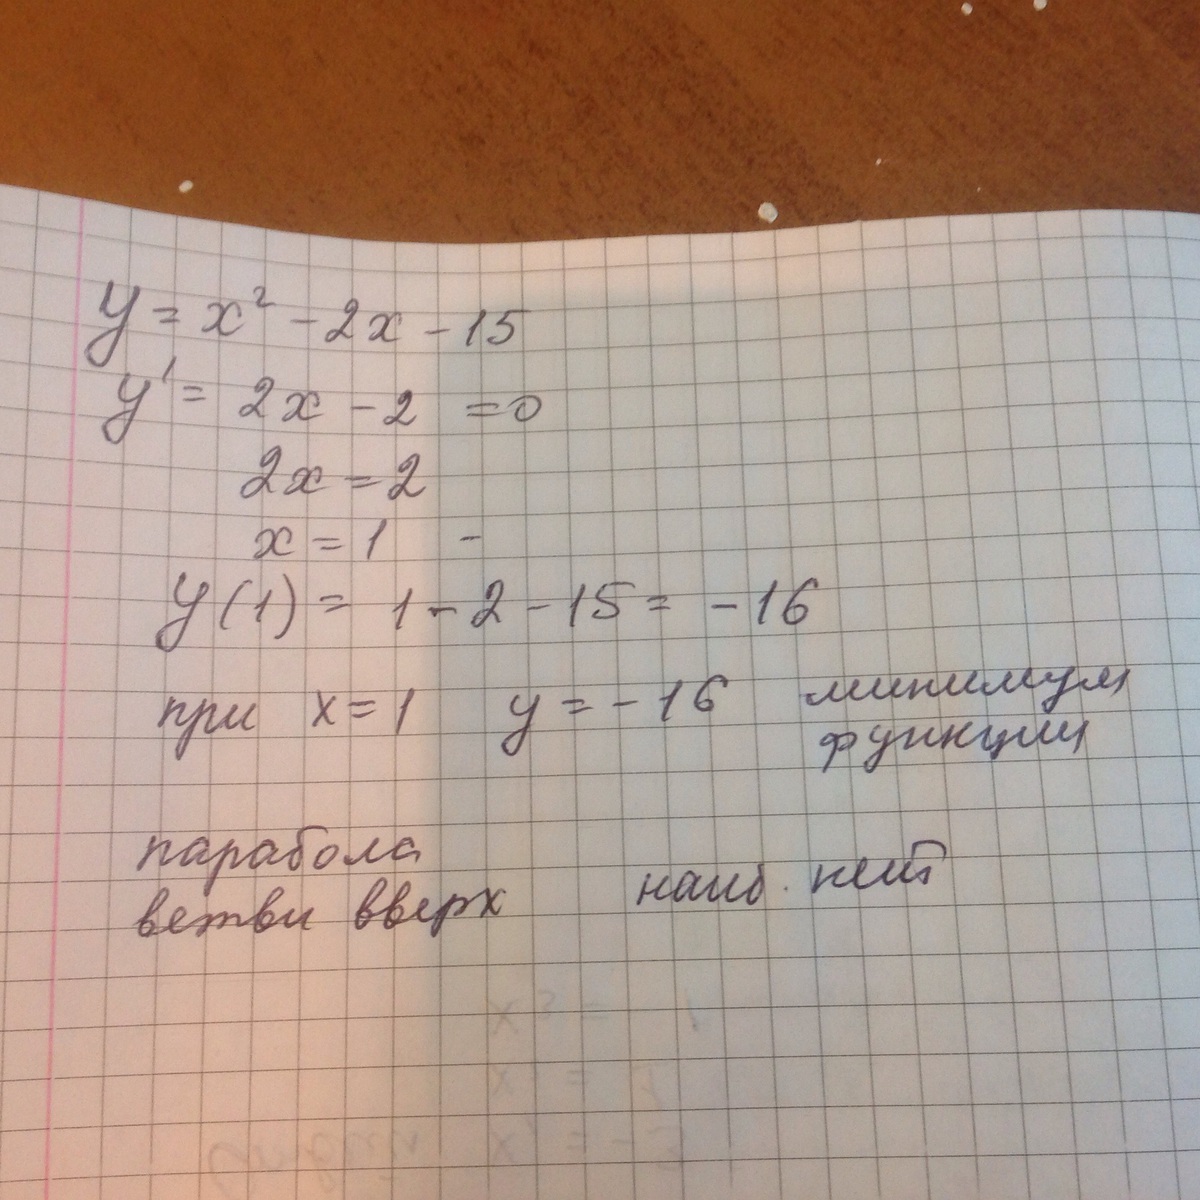 y = x² - 2x - 15
y' = 2x - 2 = 0
2x = 2
x = 1 -
y(1) = 1 - 2 - 15 = -16
при x = 1 y = -16 минимум
функции
парабола
ветви вверх наиб. нет